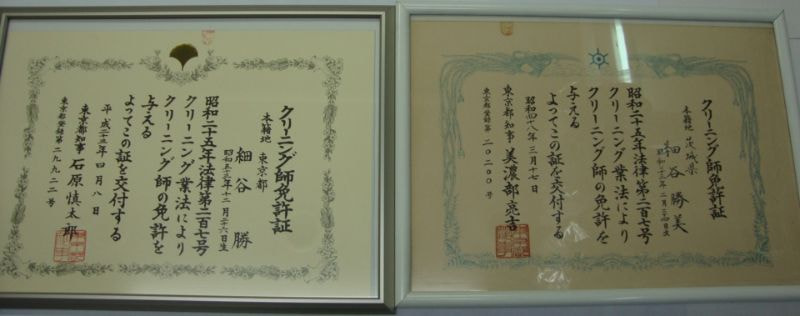 クリーニング師免許証
本籍地 東京都
細谷 勝
昭和五十三年十二月二十六日生
昭和二十五年法律第二百七号
クリーニング業法により
クリーニング師の免許を
与える
よってこの証を交付する
平成二十三年四月八日
東京都知事 石原慎太郎
東京都登録第二九九二二号
クリーニング師免許証
本籍地 茨城県
細谷勝美
昭和二十五年法律第二百七号
クリーニング業法により
クリーニング師の免許を
与える
よってこの証を交付する
昭和四十八年三月十七日
東京都知事 美濃部亮吉
東京都登録第二〇二〇〇号